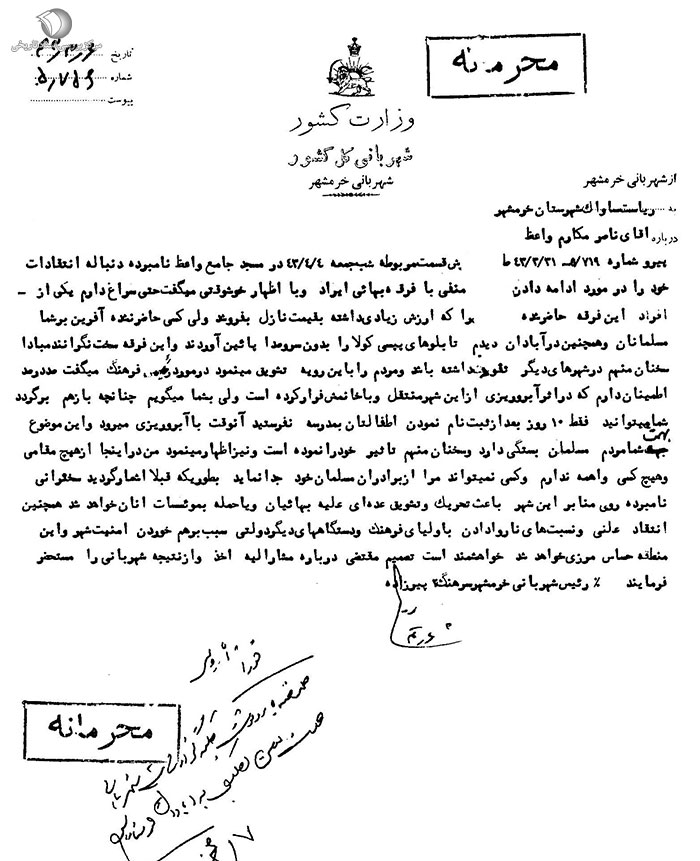 مرکز بررسی اسناد تاریخی
محرمانه
تاریخ
شماره ۵/۷۵۶
پیوست
وزارت کشور
شهربانی کل کشور
شهربانی خرمشهر
از شهربانی خرمشهر
به ریاست ساواك شهرستان خرمشهر
درباره اقای ناصر مکارم واعظ
پیرو شماره ۵/۷۱۹ـ ۴۳/۳/۳۱ ط بش قسمت مربوطه شب جمعه ۴۳/۴/۴ در مسجد جامع واعظ نامبرده دنباله انتقادات
خود را در مورد ادامه دادن منفی با فرقه بهائی ایراد وبا اظهار خوشوقتی میگفت حتی سراغ دارم یکی از ـ
افراد این فرقه حاضر شده را که ارزش زیادی داشته بقیمت نازل بفروشد ولی کسی حاضر نشده آفرین بر شما
مسلمانان وهمچنین در آبادان دیدم تابلوهای پپسی کولا را بدون سروصدا پائین آوردند واین فرقه سخت نگرانند مبادا
سخنان منهم در شهرهای دیگر نفوذ داشته باشد ومردم را باین رویه تشویق مینمود در مورد فرهنگ میگفت صد در صد
اطمینان دارم که در اثر آبروریزی از این شهر منتقل وبا خانمش فرار کرده است ولی بشما میگویم چنانچه باز هم برگردد
شما میتوانید فقط ۱۰ روز بعد از ثبت نام نمودن اطفالتان بمدرسه نفرستید آنوقت با آبروریزی میرود واین موضوع
بهمت شما مردم مسلمان بستگی دارد وسخنان منهم تاثیر خود را نموده است ونیز اظهار مینمود من در اینجا از هیچ مقامی
وهیچ کسی واهمه ندارم وکسی نمیتواند مرا از برادران مسلمان خود جدا نماید بطوریکه قبلا اشعار گردید سخنرانی
نامبرده روی منابر این شهر باعث تحریك وتشویق عده‌ای علیه بهائیان ویا حمله بموئسات انان خواهد شد همچنین
انتقاد علنی ونسبت‌های ناروا دادن باولیای فرهنگ ودستگاههای دیگر دولتی سبب برهم خوردن امنیت شهر واین
منطقه حساس مرزی خواهد شد خواهشمند است تصمیم مقتضی درباره مشارالیه اخذ واز نتیجه شهربانی را مستحضر
فرمایند ٪ رئیس شهربانی خرمشهر سرهنگ ۲ پیرزاده
محرمانه